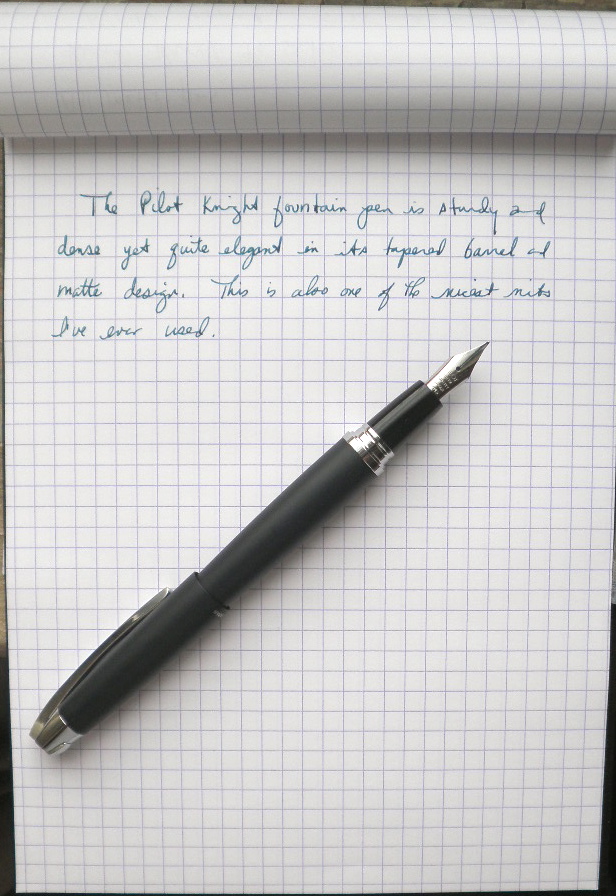 The Pilot Knight fountain pen is sturdy and
dense yet quite elegant in its tapered barrel and
matte design. This is also one of the nicest nibs
I've ever used.